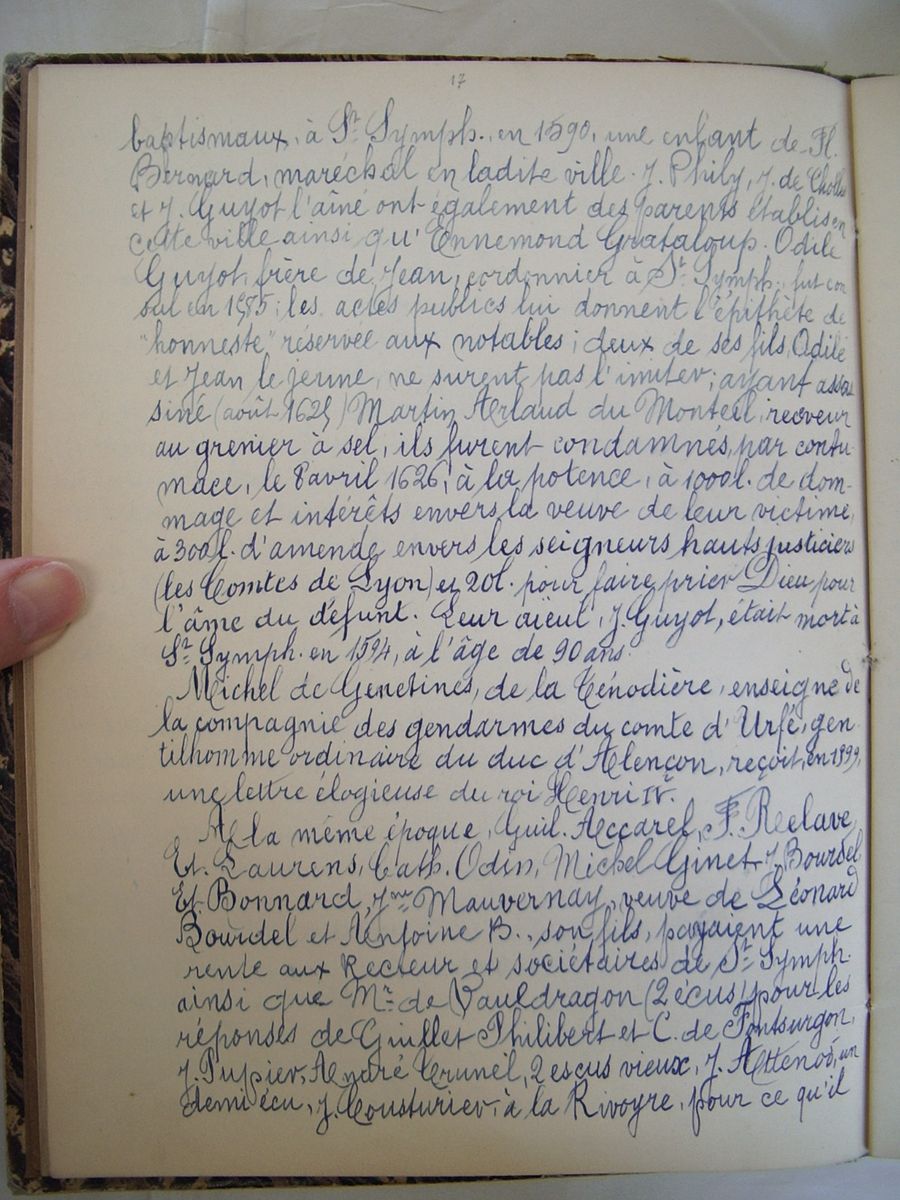 17
baptismaux, à St Symph., en 1590, une enfant de Fl.
Bernard, maréchal en ladite ville. J. Phily, J. de Cholles
et J. Guyot l'aîné ont également des parents établis en
cette ville ainsi qu'Ennemond Grataloup. Odile
Guyot, frère de Jean, cordonnier à St Symph., fut con
sul en 1585; les actes publics lui donnent l'épithète de
"honneste" réservée aux notables; deux de ses fils, Odile
et Jean le jeune, ne surent pas l'imiter; ayant assas
siné (août 1625) Martin Arlaud du Monteil, receveur
au grenier à sel, ils furent condamnés, par contu-
mace, le 8 avril 1626, à la potence, à 1000 l. de dom-
mage et intérêts envers la veuve de leur victime,
à 300 l. d'amende envers les seigneurs hauts justiciers
(les Comtes de Lyon) et 20 l. pour faire prier Dieu pour
l'âme du défunt. Leur aïeul, J. Guyot, était mort à
St Symph. en 1594, à l'âge de 90 ans.
Michel de Genetines, de la Ténodière, enseigne de
la compagnie des gendarmes du comte d'Urfé, gen-
tilhomme ordinaire du duc d'Alençon, reçoit, en
une lettre élogieuse du roi Henri IV.
A la même époque, Guil. Accarel, F. Reclave,
Et. Laurens, Cath. Odin, Michel Ginet, J. Bourdel
Et. Bonnard, Jne Mauvernay, veuve de Léonard
Bourdel et Antoine B., son fils, payaient une
rente aux Recteur et sociétaires de St Symph.
ainsi que Mr de Vauldragon (2 écus) pour les
réponses de Guillet Philibert et C. de Fontsurgon,
J. Pupier, André Trunel, 2 escus vieux, J. Attenod, un
demi écu, J. Cousturier, à la Rivoyre, pour ce qu'il